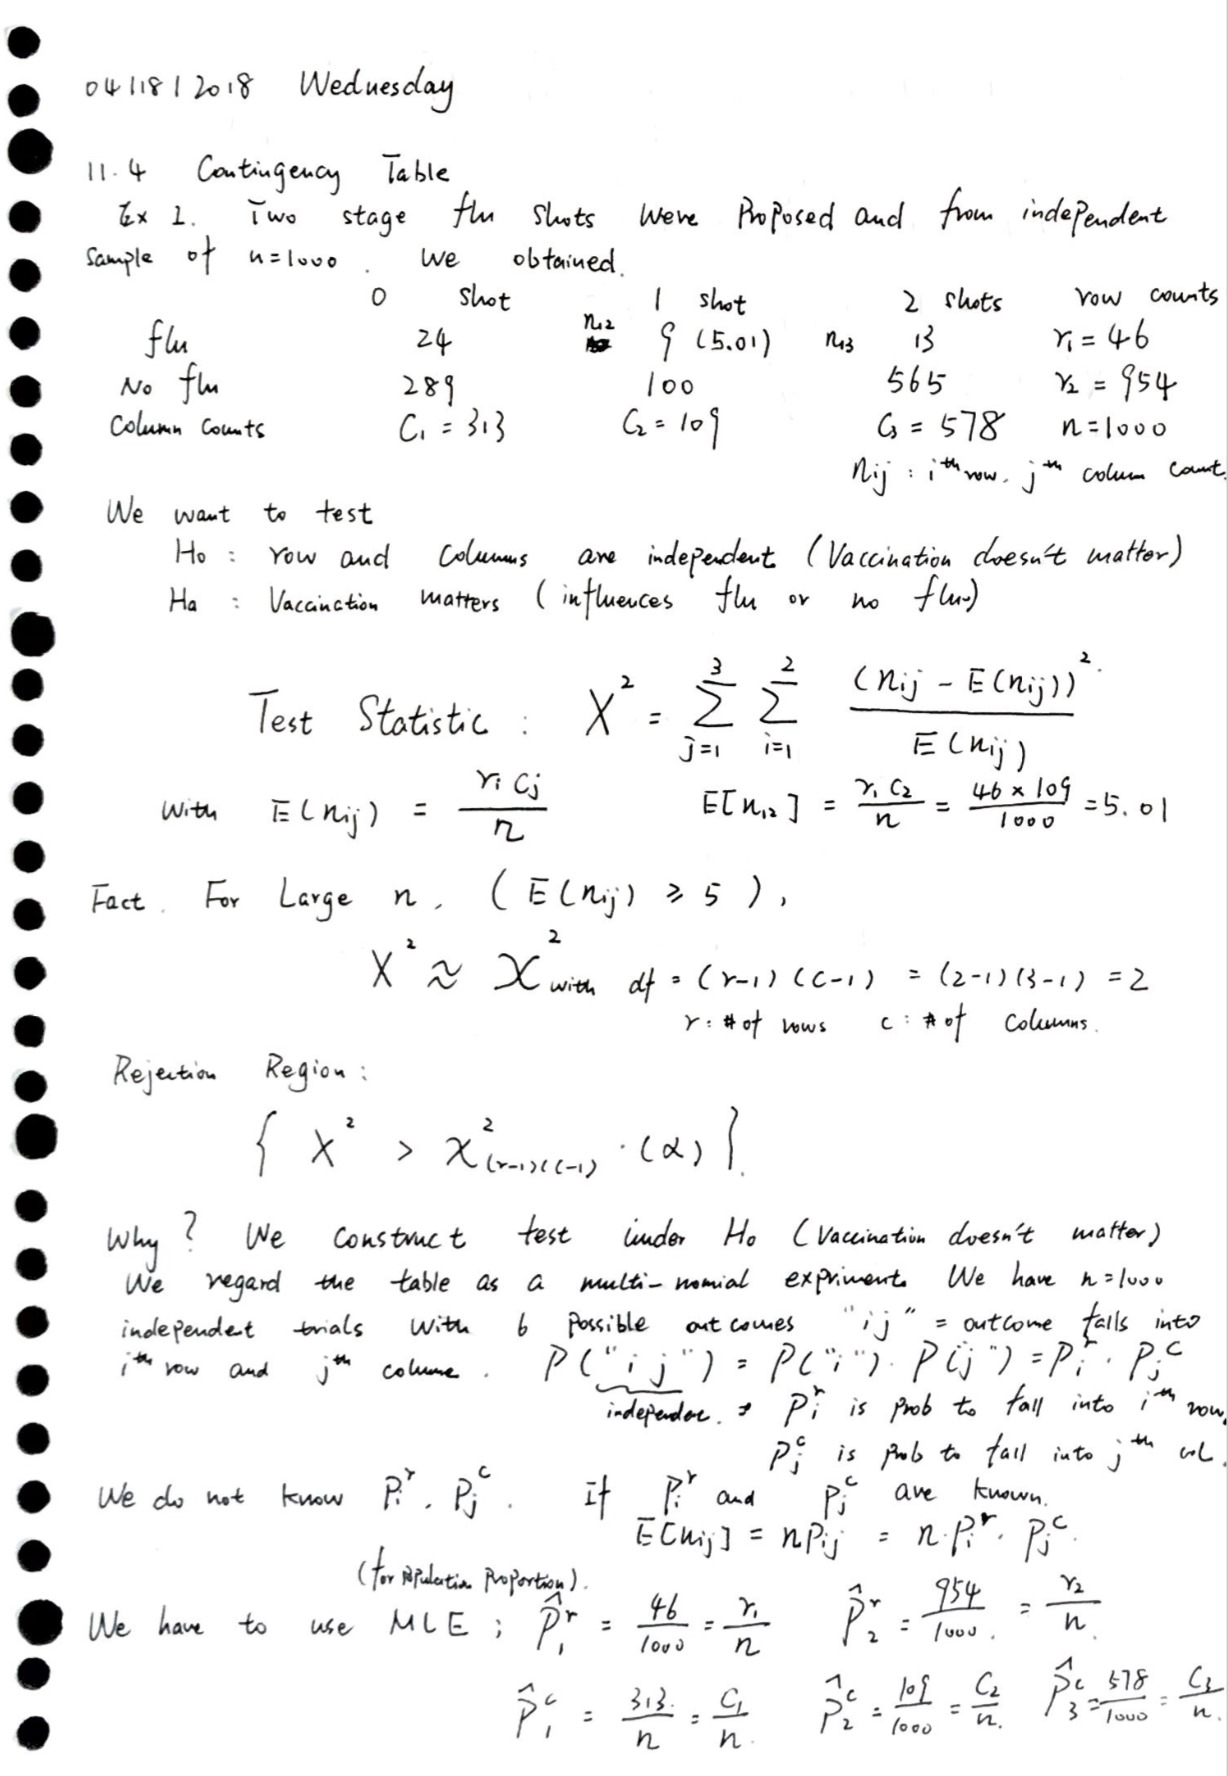 04/18/2018 Wednesday
11.4 Contingency Table
Ex 1. Two stage flu shots were proposed and from independent
sample of n=1000. We obtained.
0 shot 1 shot 2 shots row counts
flu 24 n₁₂ 9 (5.01) n₁₃ 13 r₁ = 46
No flu 289 100 565 r₂ = 954
Column counts C₁ = 313 C₂ = 109 C₃ = 578 n=1000
nij : iᵗʰ row. jᵗʰ column count.
We want to test
H₀ : row and columns are independent (Vaccination doesn't matter)
Ha : Vaccination matters (influences flu or no flu)
Test Statistic : X² = Σ_{j=1}^{3} Σ_{i=1}^{2} (nij - E(nij))² / E(nij)
With E(nij) = ri cj / n E[n₁₂] = r₁ c₂ / n = 46 × 109 / 1000 = 5.01
Fact. For Large n, (E(nij) ≥ 5),
X² ≈ χ² with df = (r-1)(c-1) = (2-1)(3-1) = 2
r: # of rows c: # of columns.
Rejection Region:
{ X² > χ²_{(r-1)(c-1)} · (α) }.
Why? We construct test under H₀ (Vaccination doesn't matter)
We regard the table as a multi-nomial expriment. We have n=1000
independent trials with 6 possible outcomes "ij" = outcome falls into
iᵗʰ row and jᵗʰ column. P("ij") = P("i")·P("j") = Pᵢʳ · Pⱼᶜ
Pᵢʳ is prob to fall into iᵗʰ row.
Pⱼᶜ is prob to fall into jᵗʰ col.
We do not know Pᵢʳ, Pⱼᶜ. If Pᵢʳ and Pⱼᶜ are known.
E[nij] = n Pij = n·Pᵢʳ·Pⱼᶜ.
(for population proportion).
We have to use MLE ; P̂₁ʳ = 46/1000 = r₁/n P̂₂ʳ = 954/1000. = r₂/n.
P̂₁ᶜ = 313./n = C₁/n. P̂₂ᶜ = 109/1000 = C₂/n. P̂₃ᶜ = 578/1000 = C₃/n.